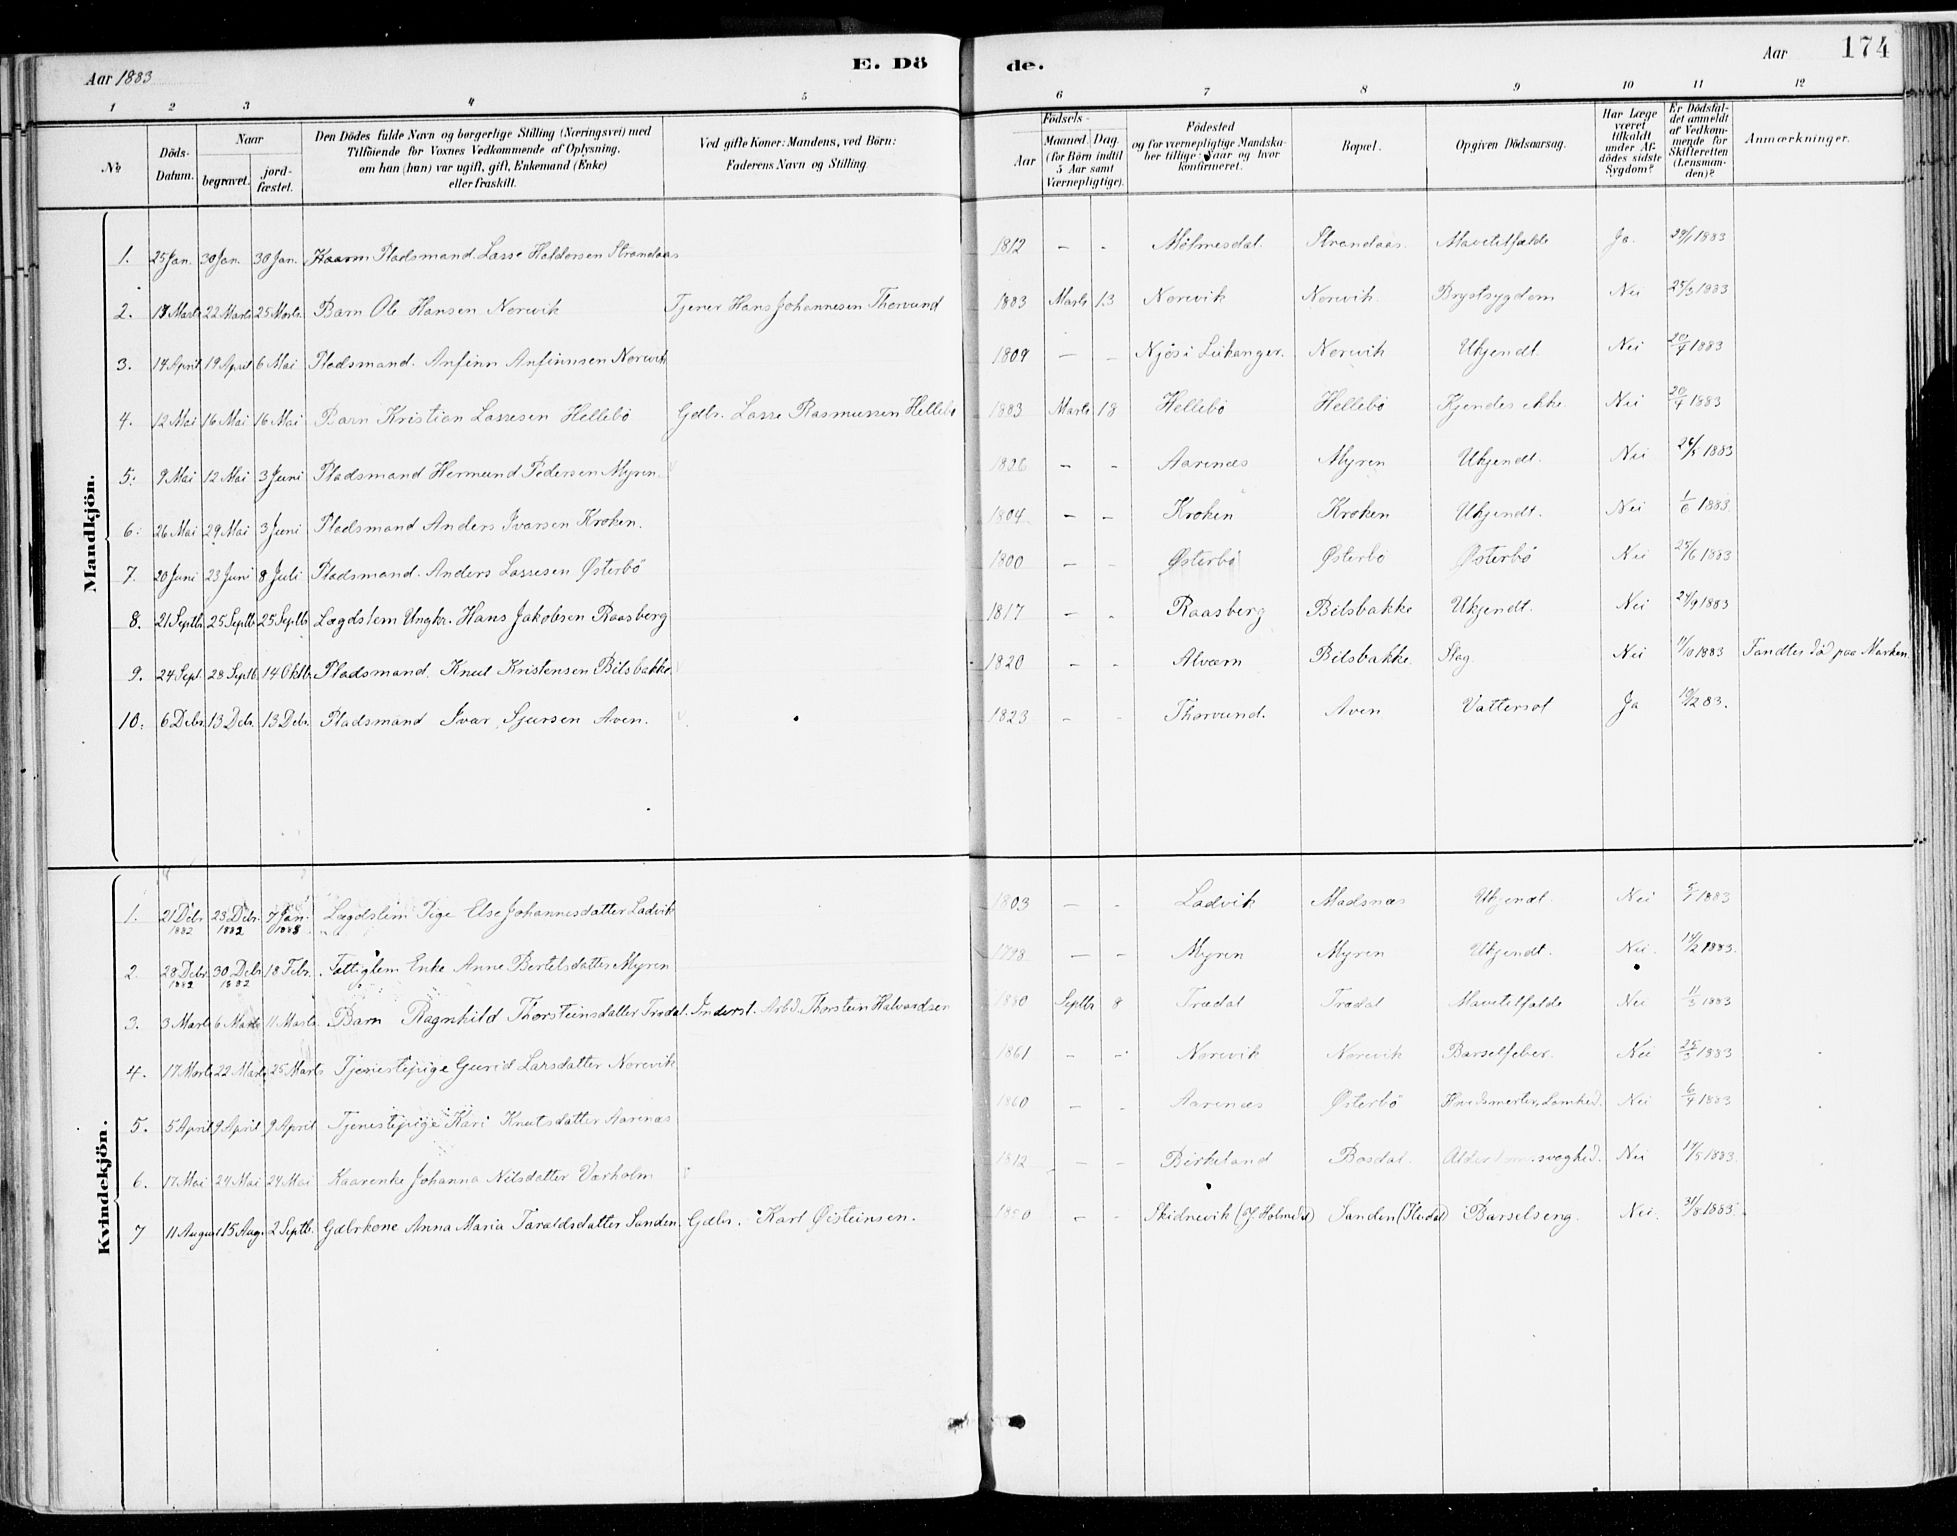 Aar 1883 E. Dö de. Aar 174
1 2 3 4 5 6 7 8 9 10 11 12
No. Döds-Datum. Naar begravet. jordfæstet. Den Dödes fulde Navn og borgerlige Stilling (Næringsvei) med Tilföiende for Voxnes Vedkommende af Oplysning, om han (hun) var ugift, gift, Enkemand (Enke) eller fraskilt. Ved gifte Koner: Mandens, ved Börn: Faderens Navn og Stilling Födsels- Aar Maaned. Dag. (for Börn indtil 5 Aar samt Værnepligtige). Födested og for værnepligtige Mandskaber tillige: Naar og hvor konfirmeret. Bopæl. Opgiven Dödsaarsag. Har Læge været tilkaldt under Afdödes sidste Sygdom? Er Dödsfaldet anmeldt af Vedkommende for Skifteretten (Lensmanden)? Anmærkninger.
Mandkjön.
1. 25 Jan. 30 Jan. 30 Jan. Pladsmand Lasse Haldorsen Strandaas 1812 – - Strandaas. Mavetilfælde Ja. 1883
2. Marts 22 Marts 25 Marts Barn Ole Hansen Norevik Tjener Hans Johannesen Thorvund 1883 Marts 13 Norevik Norevik Brystsygdom Nei 1883
3. 14 April 19 April 6 Mai Pladsmand. Anfinn Anfinnsen Norevik 1809 – – Njøs i Leikanger. Norevik Ukjendt. Nei 1883
4. 12 Mai 16 Mai 16 Mai Barn Kristian Lassesen Hellebö Gdbr. Lasse Rasmussen Hellebö 1883 Marts 18 Hellebö Hellebö Kjendes ikke Nei 1883
5. 9 Mai 12 Mai 3 Juni Pladsmand Hermund Pedersen Myren. 1806 – - Aarenæs Myren Ukjendt. Nei 1883
6. 26 Mai 29 Mai 3 Juni Pladsmand Anders Ivarsen Kroken. 1804 – – Kroken Kroken Ukjendt. Nei 1/6 1883
7. 20 Juni 23 Juni 8 Juli Pladsmand. Anders Lassesen Østerbö 1800 – - Østerbö Østerbö Østerbö Nei 25/6 1883
8. 21 Septbr 25 Septb 25 Septb Lægdslem Ungkr. Hans Jakobsen Raasberg 1817 - - Raasberg Bilsbakke Ukjendt. Nei 1883
9. 24 Sept. 28 Septb. 14 Oktb. Pladsmand. Knut Kristensen Bilsbakke 1820 - - Alværn Bilsbakke. Slag. Nei 1883 Fandtes död paa Marken
10. 6 Debr 13 Debr. 13 Debr. Pladsmand Ivar Sjursen Aven. 1823 – - Thorvund. Aven Vattersot Ja 83.
Kvindekjön.
1. 21 Debr 1882 23 Debr. 1882 7 Jan. Lægdslem Pige Else Johannesdatter Ladvik 1803 – - Ladvik Madsnæs Ukjendt Nei 1883
2. 28 Debr 1882 30 Debr 1882 18 Febr. Fattiglem Enke Anne Bertelsdatter Myren 1798 – – Myren Myren Ukjendt. Nei. 14/2 1883.
3. 3 Marts 6 Marts 11 Marts. Barn Ragnhild Thorsteinsdatter Trædal. Inderst. Arbd. Thorstein Halvardsen 1880 Septbr 8 Trædal Trædal Mavetilfælde Nei 11/3 1883
4. 17 Marts 22 Marts 25 Marts Tjenestepige Gurid Larsdatter Norevik. 1861 – - Norevik Norevik Barselfeber. Nei 25/3 1883
5. 5 April 9 April 9 April Tjenestepige Kari Knutsdatter Aarenæs 1860 – - Aarenæs Østerbö Nei 1883
6. 17 Mai 24 Mai 24 Mai Kaarenke Johanna Nilsdatter Varholm 1812 – - Birkeland Bosdal. Alderdomssvaghed. Nei 1883.
7 11 August 15 Aug. 2 Septb. Gdbrkone Anna Maria Taraldsdatter Sanden. Gdbr. Karl Øisteinsen. – - Skidnevik Sanden Barselseng. Nei. 31/8 1883.